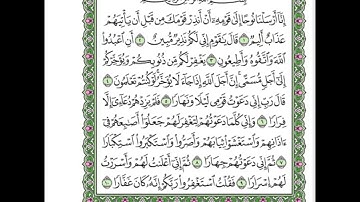 إِنَّا أَرْسَلْنَا نُوحًا إِلَىٰ قَوْمِهِ أَنْ أَنذِرْ قَوْمَكَ مِن قَبْلِ أَن يَأْتِيَهُمْ
عَذَابٌ أَلِيمٌ ١ قَالَ يَٰقَوْمِ إِنِّي لَكُمْ نَذِيرٌ مُّبِينٌ ٢ أَنِ ٱعْبُدُوا۟
ٱللَّهَ وَٱتَّقُوهُ وَأَطِيعُونِ ٣ يَغْفِرْ لَكُم مِّن ذُنُوبِكُمْ وَيُؤَخِّرْكُمْ
إِلَىٰ أَجَلٍ مُّسَمًّى إِنَّ أَجَلَ ٱللَّهِ إِذَا جَآءَ لَا يُؤَخَّرُ لَوْ كُنتُمْ تَعْلَمُونَ ٤
قَالَ رَبِّ إِنِّي دَعَوْتُ قَوْمِي لَيْلًا وَنَهَارًا ٥ فَلَمْ يَزِدْهُمْ دُعَآءِيٓ إِلَّا
فِرَارًا ٦ وَإِنِّي كُلَّمَا دَعَوْتُهُمْ لِتَغْفِرَ لَهُمْ جَعَلُوٓا۟ أَصَٰبِعَهُمْ فِيٓ
ءَاذَانِهِمْ وَٱسْتَغْشَوْا۟ ثِيَابَهُمْ وَأَصَرُّوا۟ وَٱسْتَكْبَرُوا۟ ٱسْتِكْبَارًا
٧ ثُمَّ إِنِّي دَعَوْتُهُمْ جِهَارًا ٨ ثُمَّ إِنِّيٓ أَعْلَنتُ لَهُمْ وَأَسْرَرْتُ
لَهُمْ إِسْرَارًا ٩ فَقُلْتُ ٱسْتَغْفِرُوا۟ رَبَّكُمْ إِنَّهُۥ كَانَ غَفَّارًا ١٠